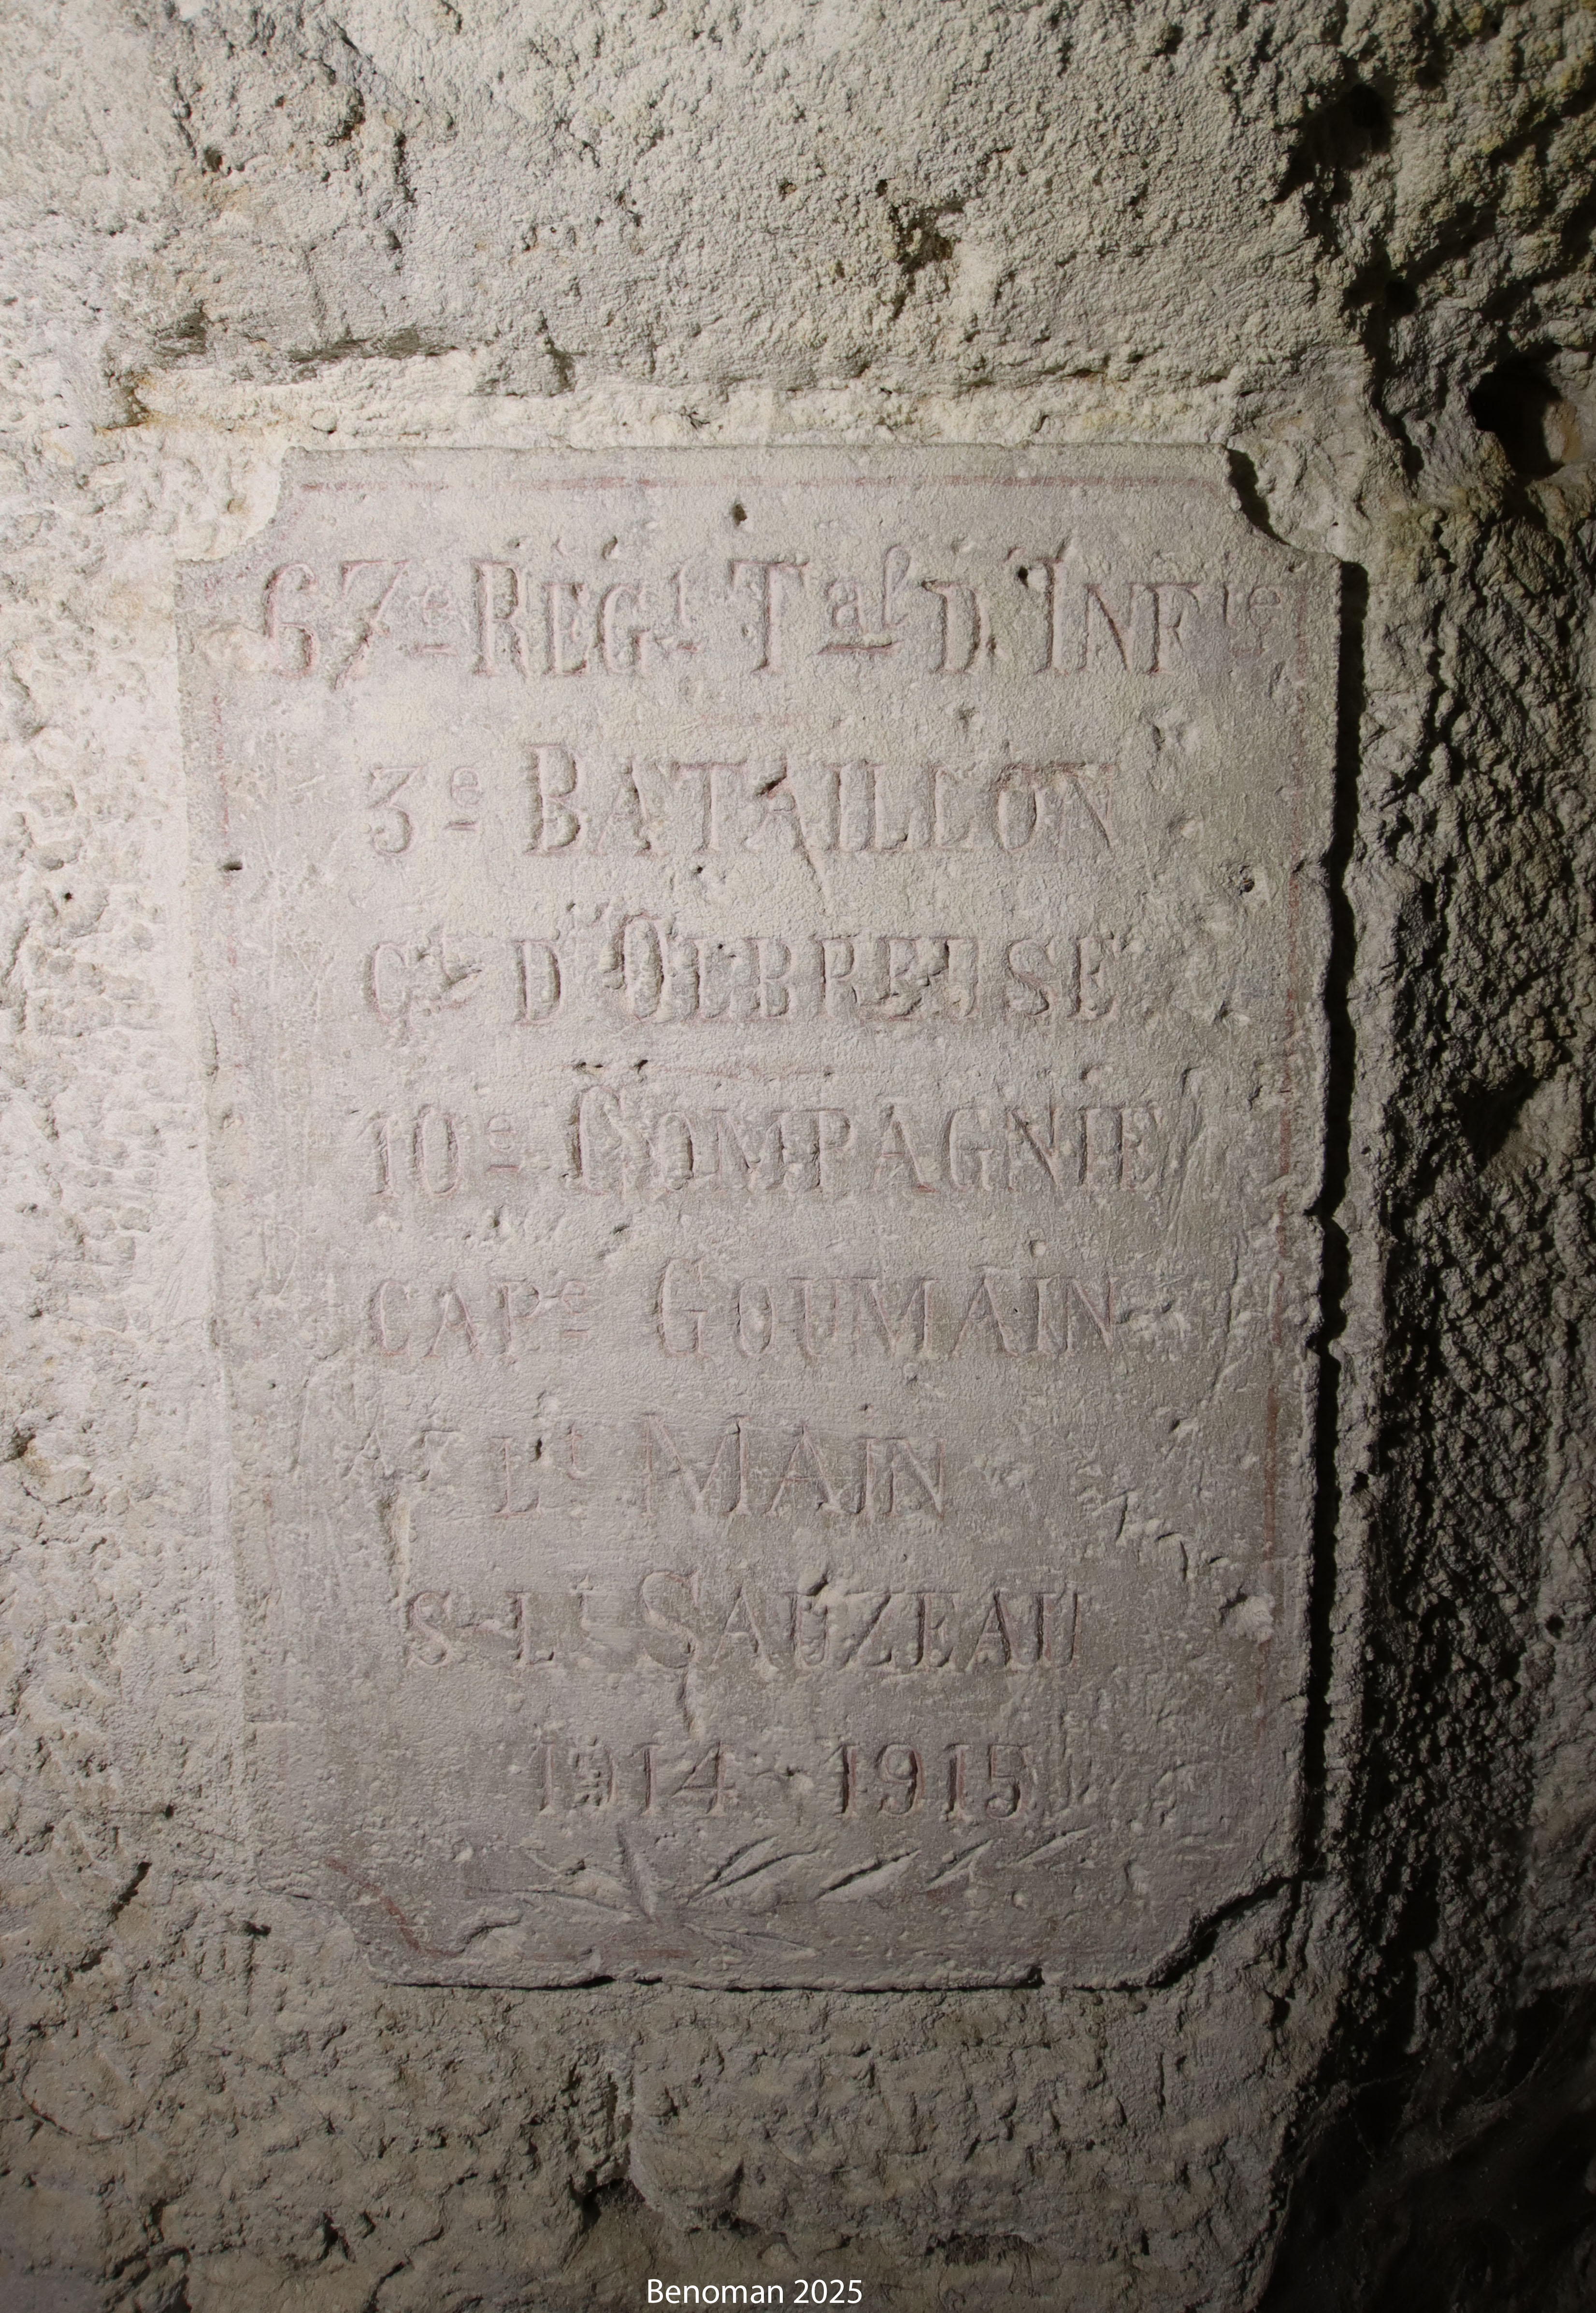 67e REGt Tal D'INFie
3e BATAILLON
Ct D'OLBREUSE
10e COMPAGNIE
CAPe GOUMAIN
Lt MAIN
S-Lt SAUZEAU
1914 - 1915
Benoman 2025